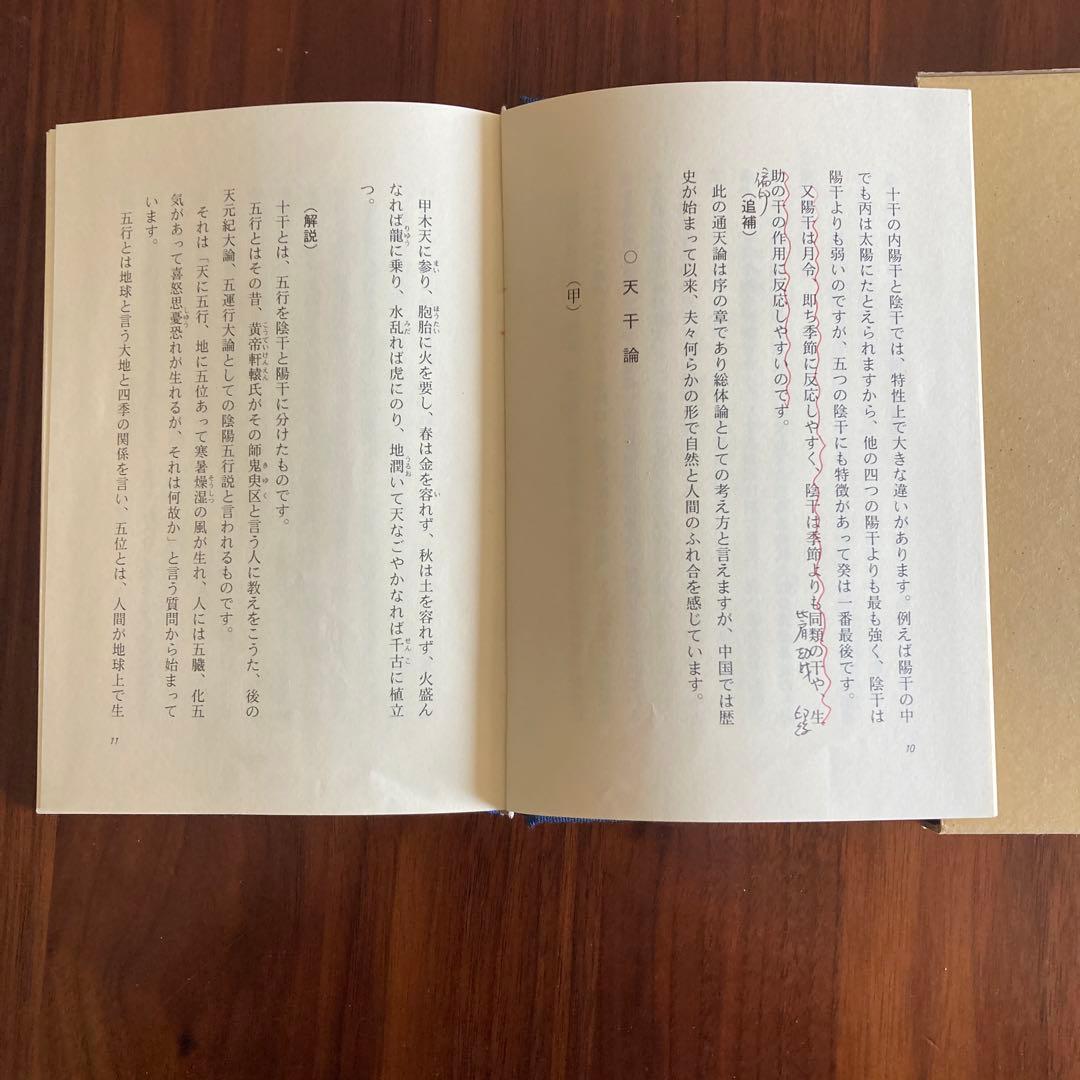 十干の内陽干と陰干では、特性上で大きな違いがあります。例えば陽干の中
でも丙は太陽にたとえられますから、他の四つの陽干よりも最も強く、陰干は
陽干よりも弱いのですが、五つの陰干にも特徴があって癸は一番最後です。
又陽干は月令、即ち季節に反応しやすく、陰干は季節よりも同類の干や、生
助の干の作用に反応しやすいのです。
(追補)
此の通天論は序の章であり総体論としての考え方と言えますが、中国では歴
史が始まって以来、夫々何らかの形で自然と人間のふれ合を感じています。
○天干論
(甲)
10
甲木天に参り、胞胎に火を要し、春は金を容れず、秋は土を容れず、火盛ん
なれば龍に乗り、水乱れば虎にのり、地潤いて天なごやかなれば千古に植立
つ。
(解説)
十干とは、五行を陰干と陽干に分けたものです。
五行とはその昔、黄帝軒轅氏がその師鬼臾区と言う人に教えをこうた、後の
天元紀大論、五運行大論としての陰陽五行説と言われるものです。
それは「天に五行、地に五位あって寒暑燥湿の風が生れ、人には五臓、化五
気があって喜怒思憂恐れが生れるが、それは何故か」と言う質問から始まって
います。
五行とは地球と言う大地と四季の関係を言い、五位とは、人間が地球上で生
11